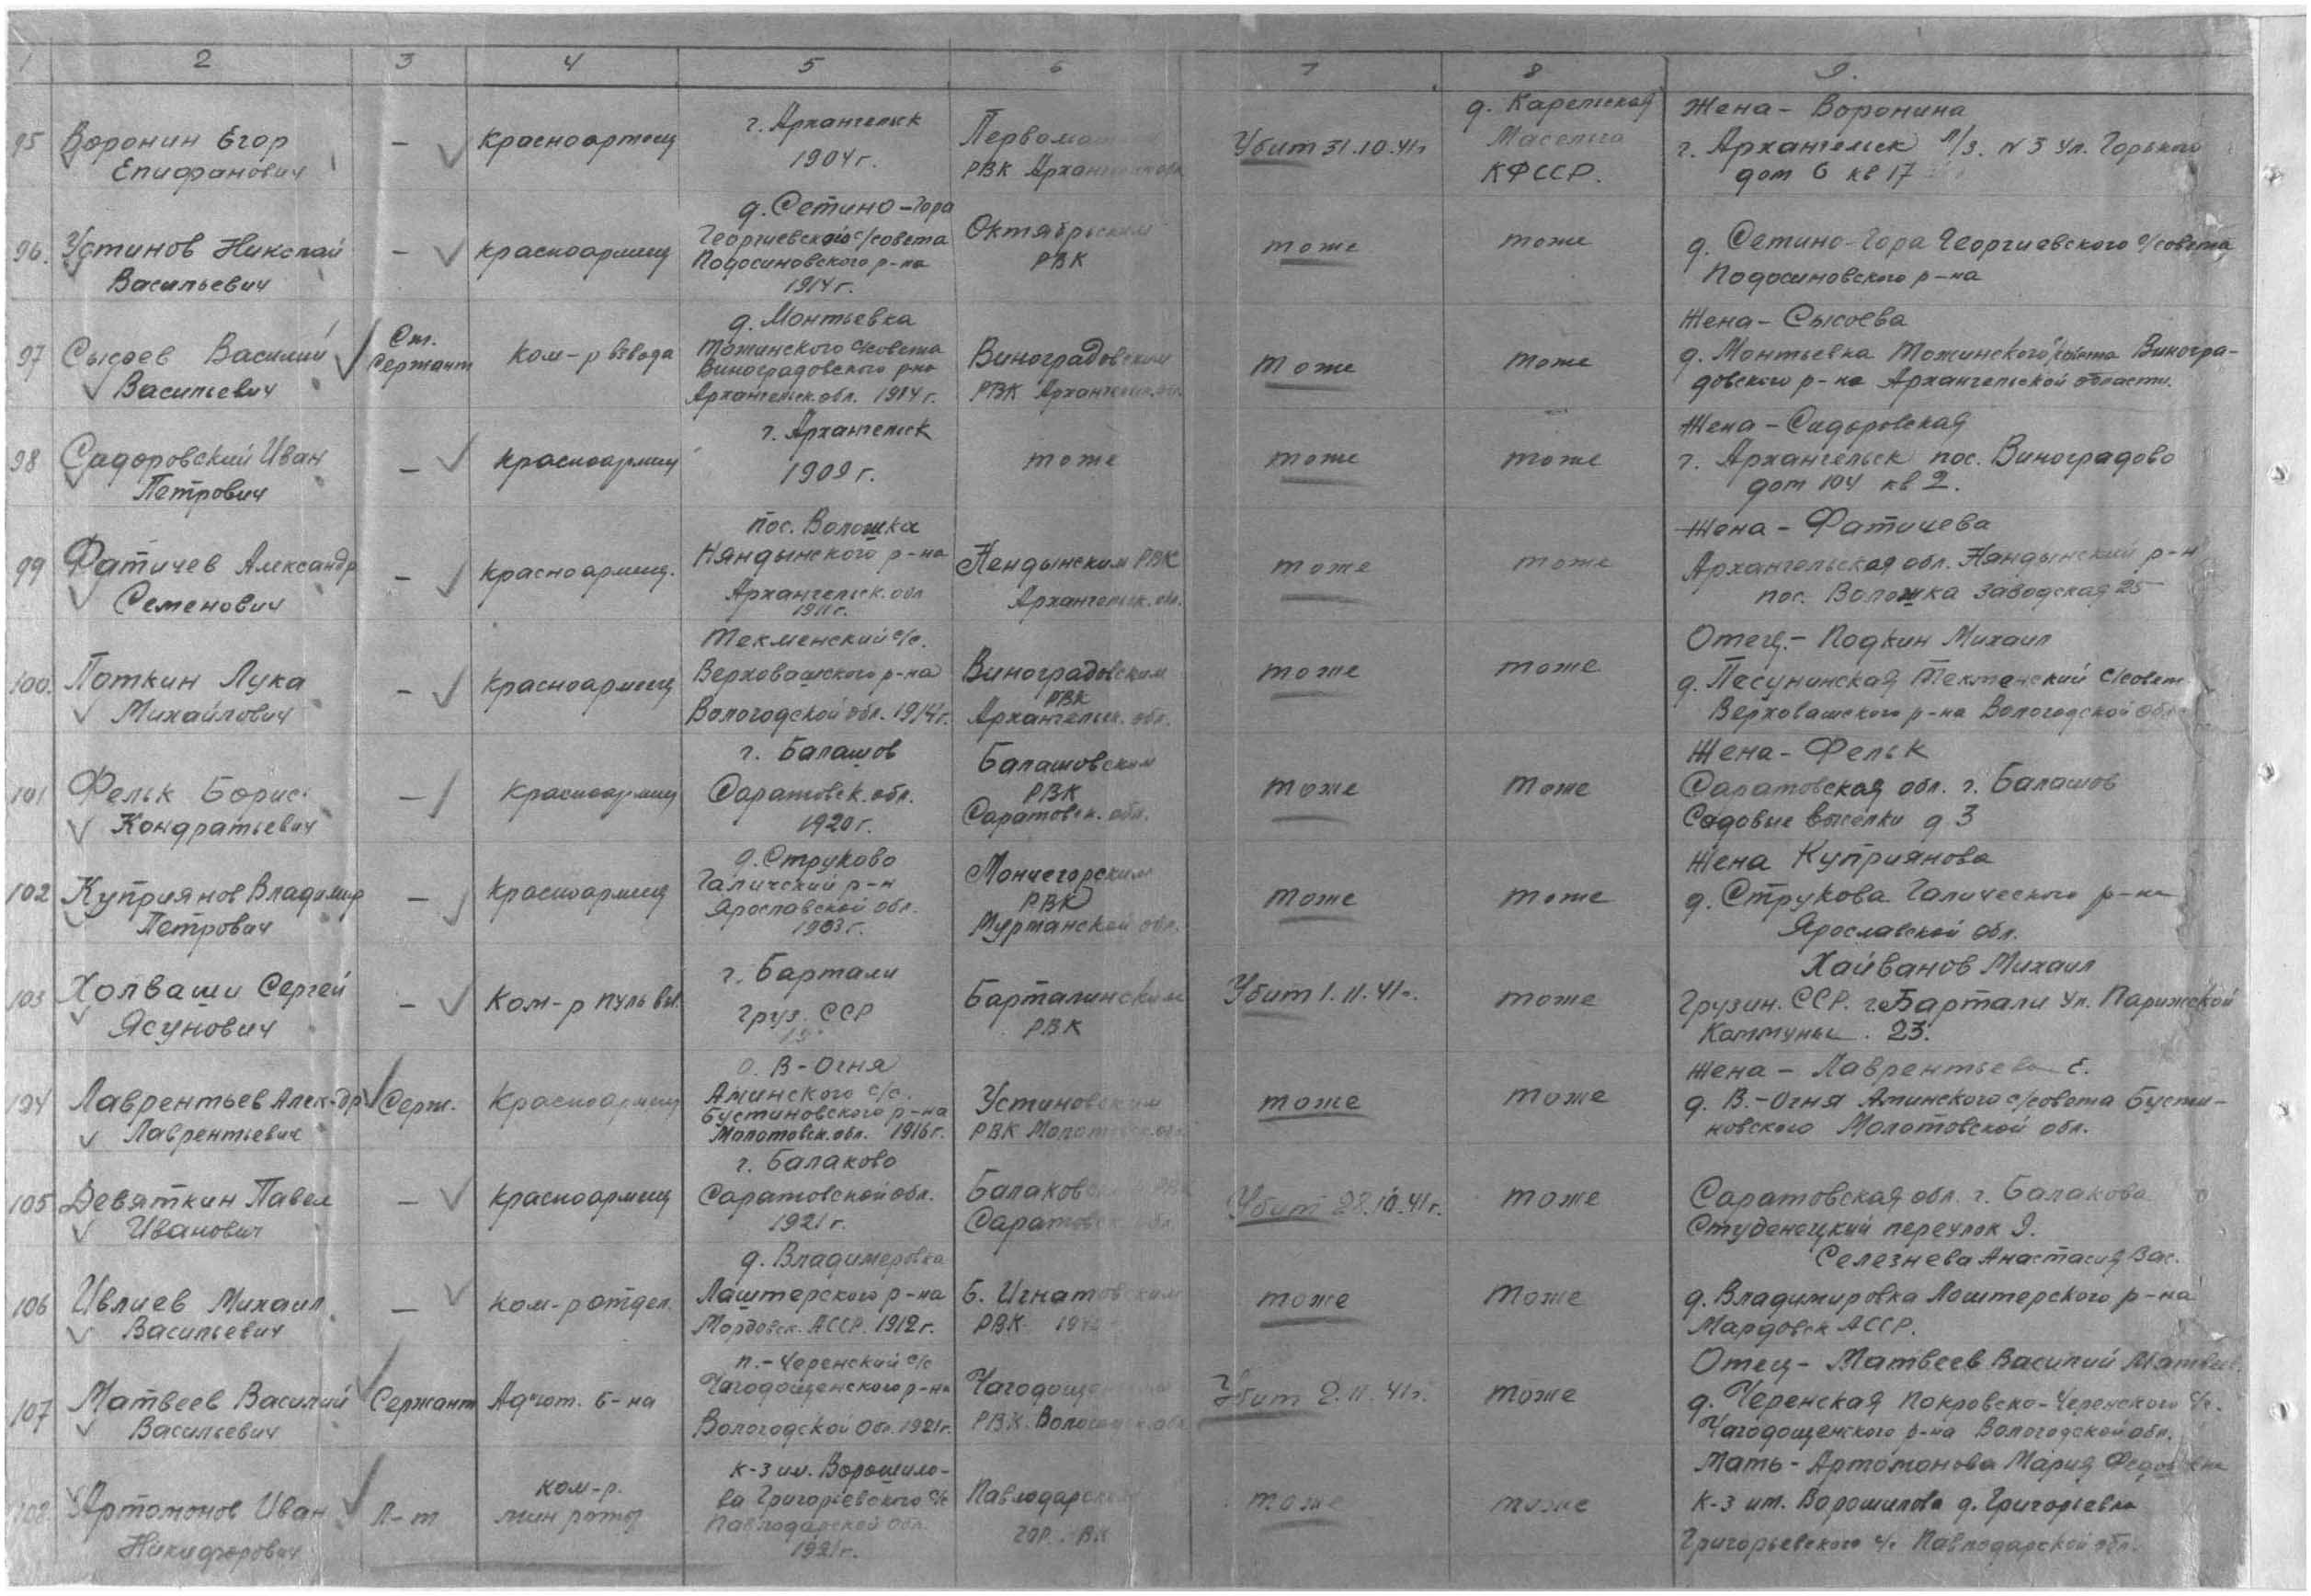 1 2 3 4 5 6 7 8 9.
95 Воронин Егор
Епифанович
— Красноармеец
г. Архангельск
1904 г.
РВК
Убит 31.10.41г
д. Карельская
Масельга
КФССР.
Жена - Воронина
г. Архангельск Л/з. N 3 ул. Горького
дом 6 кв 17
96. Устинов Николай
Васильевич
— Красноармеец
д. Сетино-Гора
Георгиевского с/совета
Подосиновского р-на
1914 г.
Октябрьским
РВК
тоже
тоже
д. Сетино-Гора Георгиевского с/совета
Подосиновского р-на
97 Сысоев Василий
Васильевич
Ст.
Сержант
Ком-р взвода
д. Монтьевка
Тожинского с/совета
Виноградовского р-на
Архангельск. обл. 1914 г.
Виноградовским
РВК Архангельск. обл.
тоже
тоже
Жена - Сысоева
д. Монтьевка Тожинского с/совета Виногра-
довского р-на Архангельской области.
98 Сидоровский Иван
Петрович
— Красноармеец
г. Архангельск
1909 г.
тоже
тоже
тоже
Жена - Сидоровская
г. Архангельск пос. Виноградово
дом 104 кв 2.
99 Фатичев Александр
Семенович
— Красноармеец.
пос. Волошка
Няндынского р-на
Архангельск. обл
1911 г.
Нендынским РВК
Архангельск. обл.
тоже
тоже
Жена - Фатичева
Архангельская обл. Няндынский р-н
пос. Волошка Заводская 25
100. Поткин Лука
Михайлович
— Красноармеец
Текменский с/с.
Верховашского р-на
Вологодской обл. 1914 г.
Виноградовским
РВК
Архангельск. обл.
тоже
тоже
Отец. - Подкин Михаил
д. Песунинская Текменский с/совет
Верховашского р-на Вологодской обл
101 Фельк Борис
Кондратьевич
— Красноармеец
г. Балашов
Саратовск. обл.
1920 г.
Балашовским
РВК
Саратовск. обл.
тоже
тоже
Жена - Фельк
Саратовская обл. г. Балашов
Садовые выселки д 3
102 Куприянов Владимир
Петрович
— Красноармеец
д. Струково
Галичский р-н
Ярославской обл.
1903 г.
Мончегорским
РВК
Мурманской обл.
тоже
тоже
Жена Куприянова
д. Струкова Галического р-на
Ярославской обл.
103 Холваши Сергей
Ясунович
— Ком-р пуль вз.
г. Бартали
Груз. ССР
Барталинским
РВК
Убит 1.11.41г.
тоже
Хайванов Михаил
Грузин. ССР. г. Бартали ул. Парижской
Коммуны. 23.
104 Лаврентьев Алек-др
Лаврентьевич
Серж.
Красноармеец
В-Огня
Аминского с/с.
Бустиновского р-на
Молотовск. обл. 1916 г.
Устиновским
РВК
тоже
тоже
Жена - Лаврентьева Е.
д. В.-Огня Аминского с/совета Бусти-
новского Молотовской обл.
105 Девяткин Павел
Иванович
— Красноармеец
г. Балаково
Саратовской обл.
1921 г.
Убит 28.10.41г.
тоже
Саратовская обл. г. Балакова
Студенецкий переулок 9.
106 Ивлиев Михаил
Васильевич
— Ком-р отдел.
д. Владимеровка
Лаштерского р-на
Мордовск. АССР. 1912 г.
Б. Игнатовским
РВК
тоже
тоже
Селезнева Анастасия Вас.
д. Владимировка Лаштерского р-на
Мардовск АССР.
107 Матвеев Василий
Васильевич
Сержант
Адъют. б-на
п.-Черенский с/с
Чагодощенского р-на
Вологодской Обл. 1921 г.
РВК
Убит 2.11.41г.
тоже
Отец - Матвеев Василий
д. Черенская Покровско-Черенского с/с.
Чагодощенского р-на Вологодской обл.
108 Артомонов Иван
Никифорович
Л-т
ком-р.
мин роты
к-з им. Ворошило-
ва Григорьевского с/с
Павлодарской Обл.
1921 г.
гор. ВК
тоже
тоже
Мать - Артомонова Мария
к-з им. Ворошилова д. Григорьевка
Григорьевского с/с Павлодарской обл.